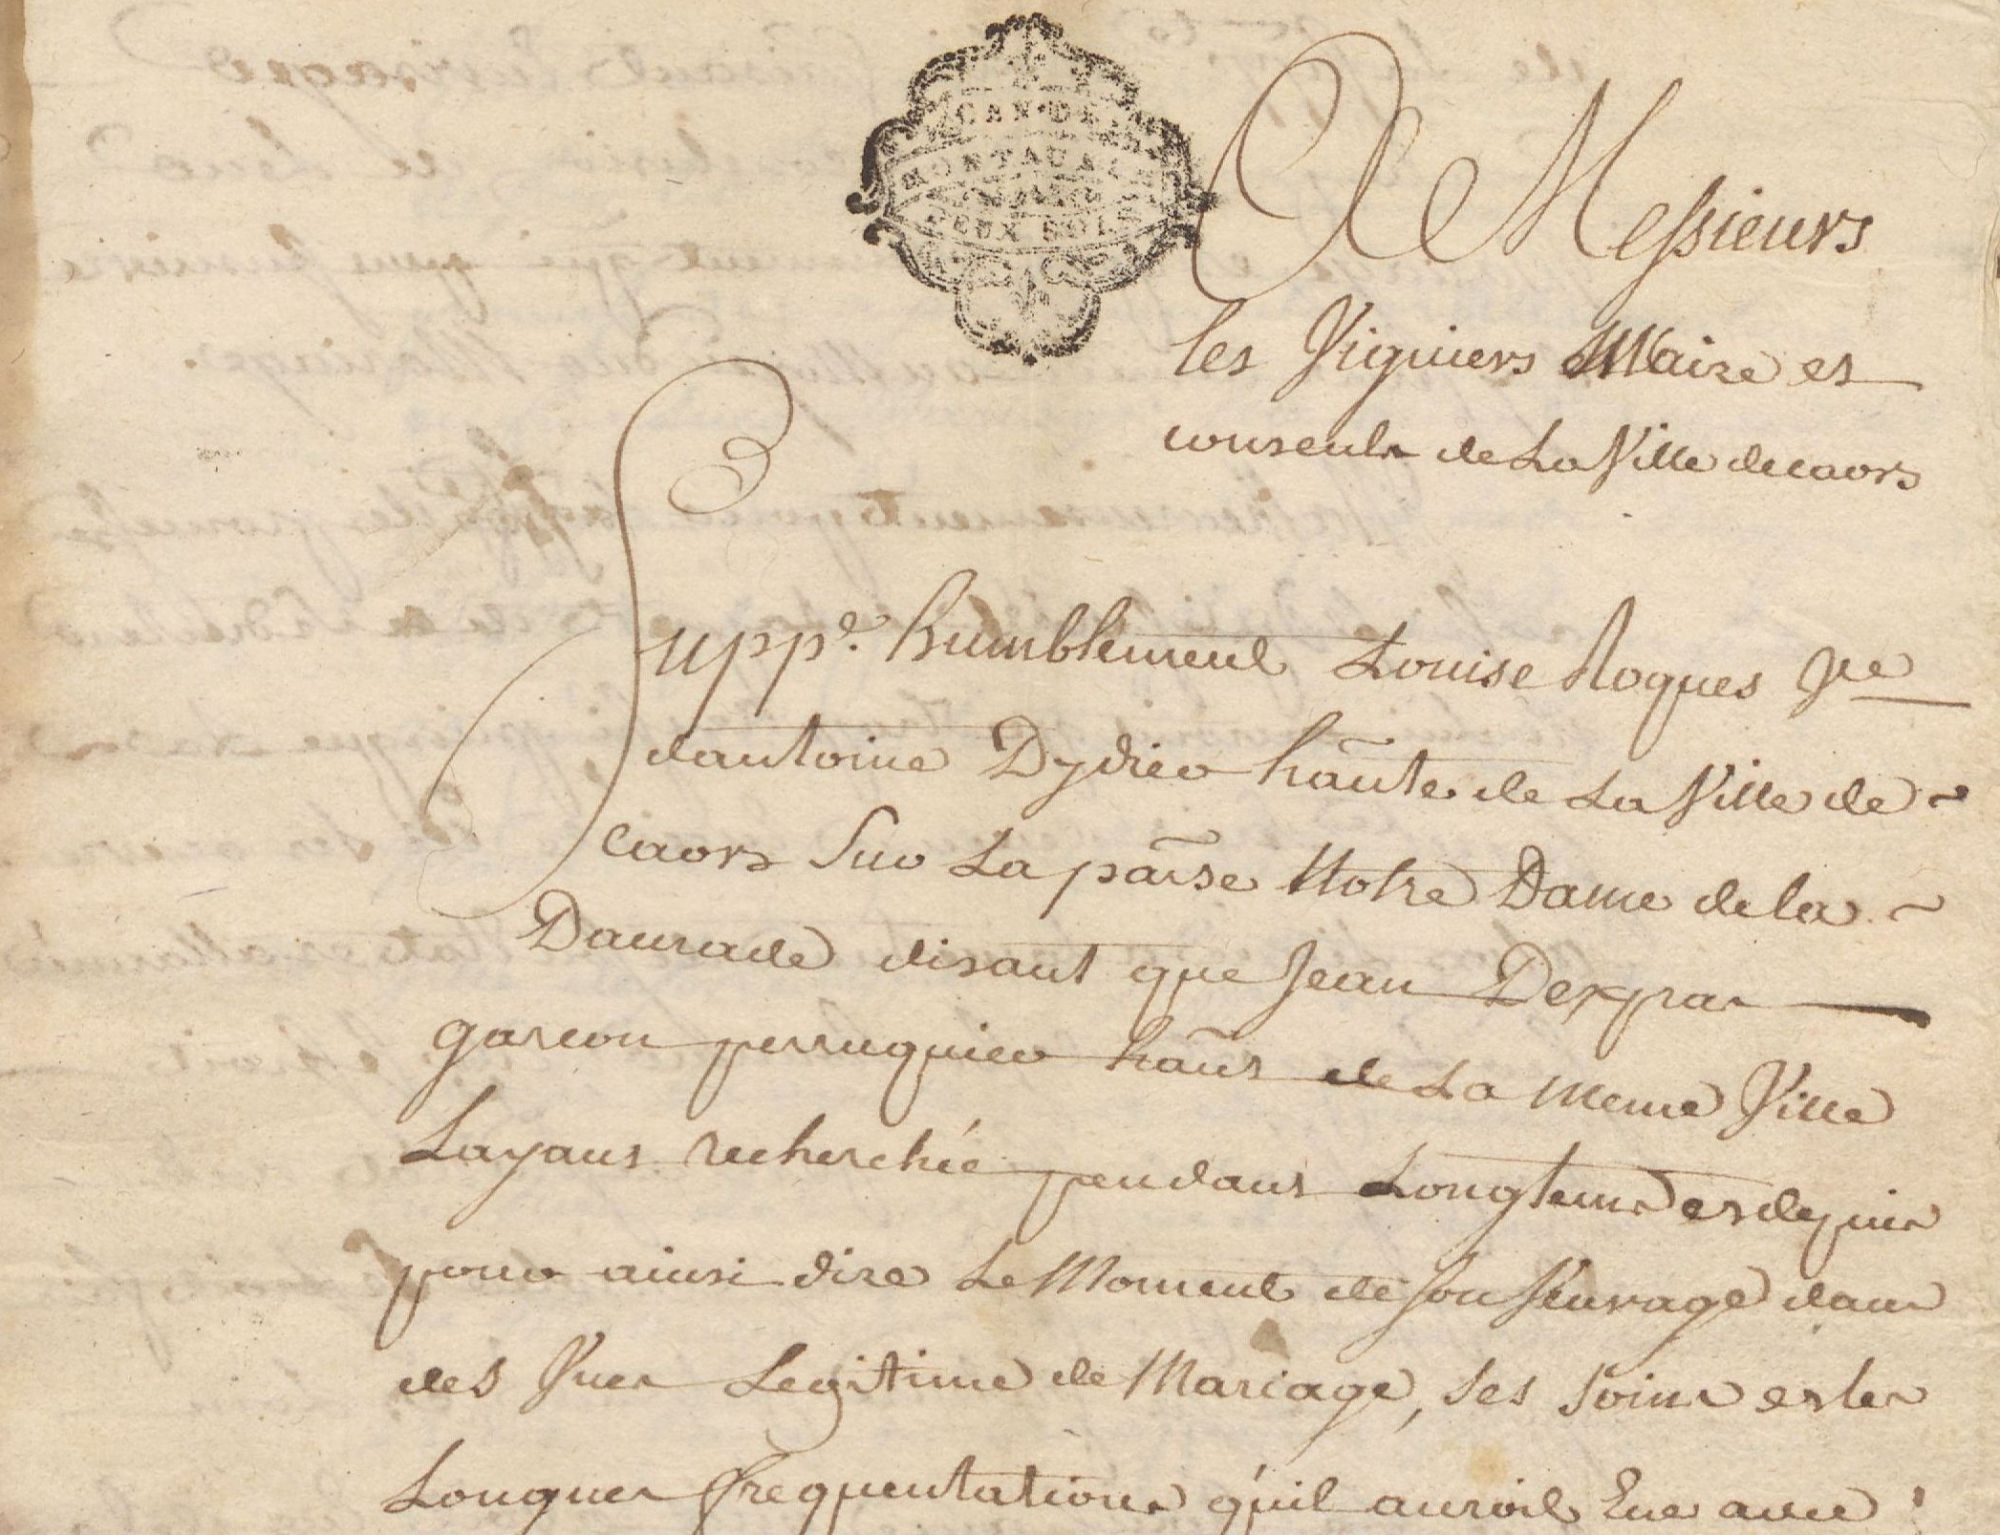 GEN. DE
MONTAUBAN
DEUX SOLS
A Messieurs
les Viguiers Maire et
conseuls de La Ville de caors
Suppe. humblement Louise Roques Vve
dantoine Dydieo hãnte de La Ville de ~
caors sur La pãrse Notre Dame de la ~
Daurade disant que Jean Dexpas
garcon perruquier hãnt de La meme Ville
Layant recherchée pendant Longtems et depuis
pour ainsi dire Le Moment de son veuvage dans
des Vues Legitime de Mariage, ses soins et les
Longues frequentations q'uil auroit Eue avec